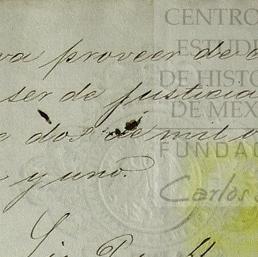 va proveer de c
ser de justicia
e dos de mil o
y uno.
CENTRO
ESTUDI
DE HISTO
DE MEX
FUNDAC
Carlos S